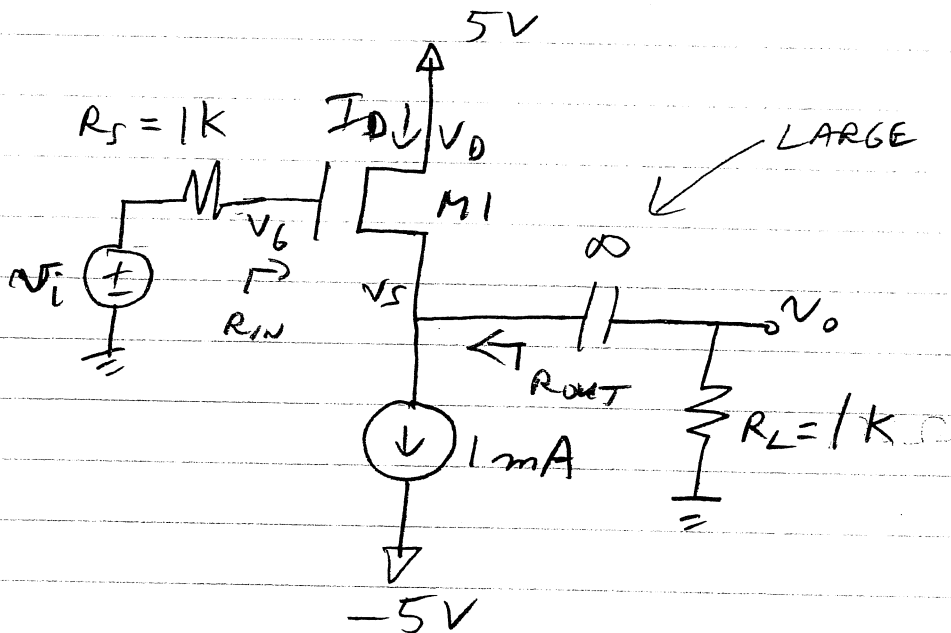 5V
R_S = 1K
I_D ↓
V_D
LARGE
M1
∞
V_G
V_S
v_i
±
R_IN
v_o
R_OUT
R_L = 1K
1mA
-5V